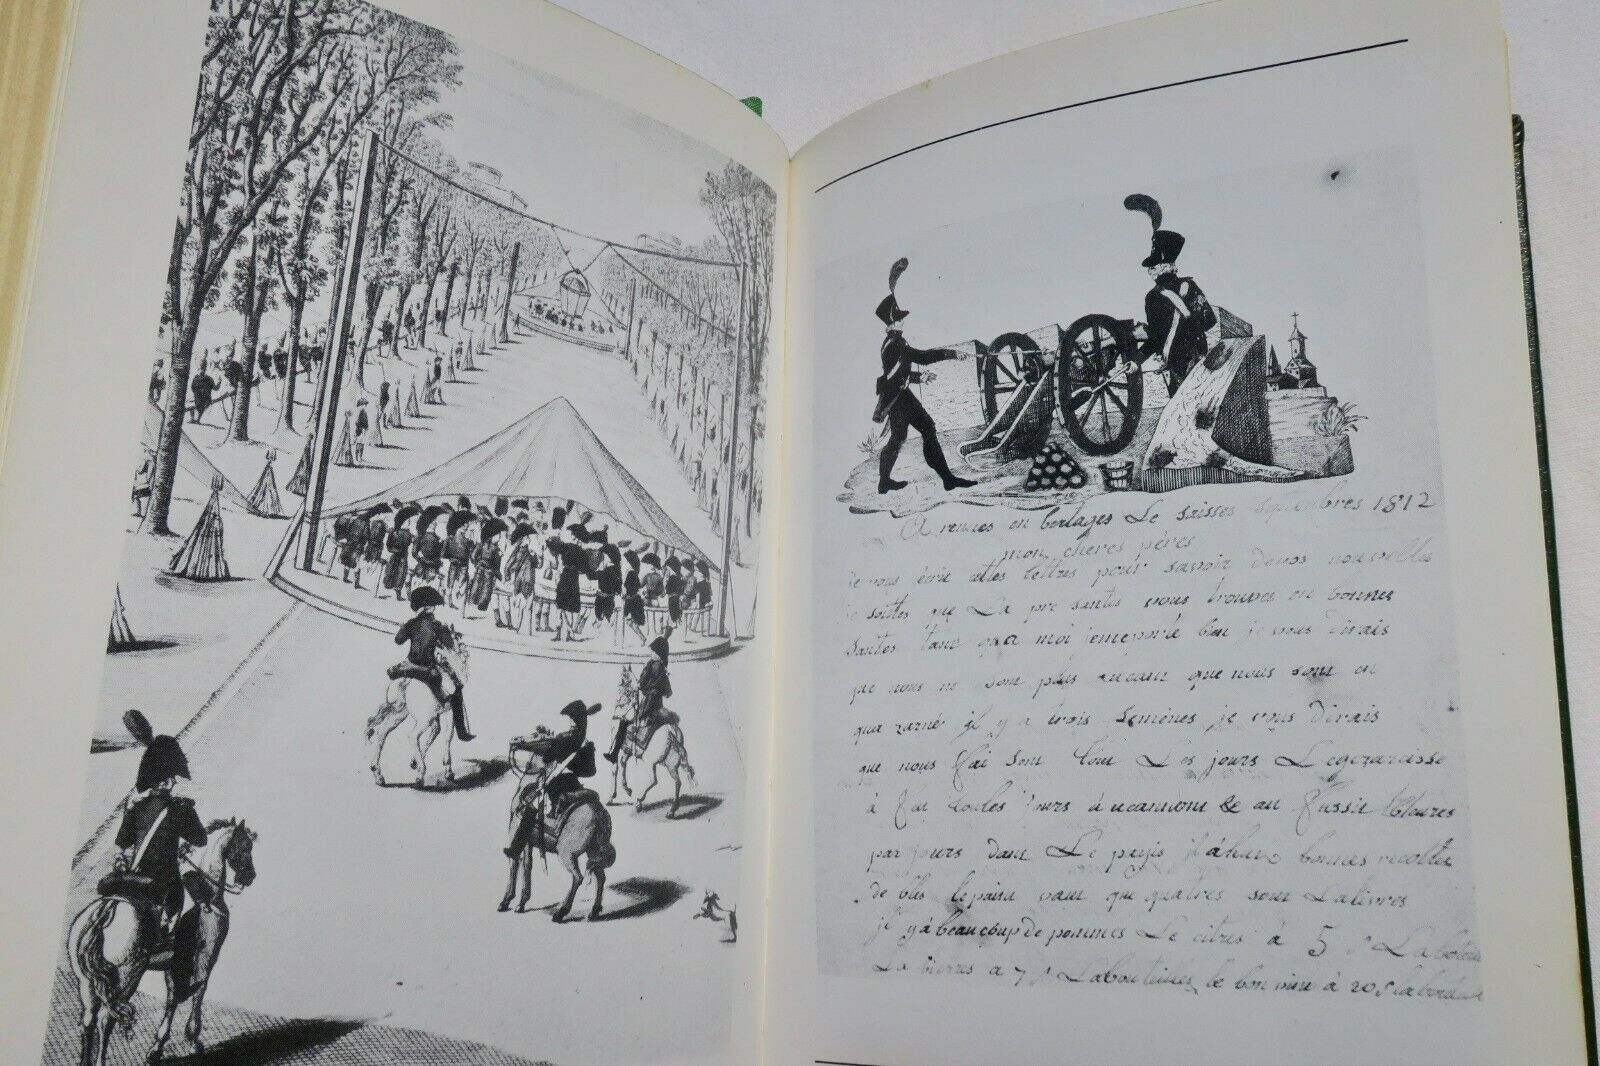 A rennes en bertages Le saisses sepanbres 1812
mon cheres pères
je vous écrie cettes lettres pour savoir denos nouvelles
je soites que La pre santes vous trouves en bonnes
santes tant qua moi jemeporte ben je vous dirais
que nous ne som plus aucant que nous som en
qua zarné il y a trois semènes je vous dirais
que nous fai som tout Les jours Legzarcisse
à feu toules jours aucannont & au
par jours dant Le peyis il àhan bonnes recoltes
de bles lepain vant que quatres som Lalivres
il yà beaucoup de pommes Le citres à 5 s Laboteu
La bierres a 7 s Labouteilles le bon vin à 20 s